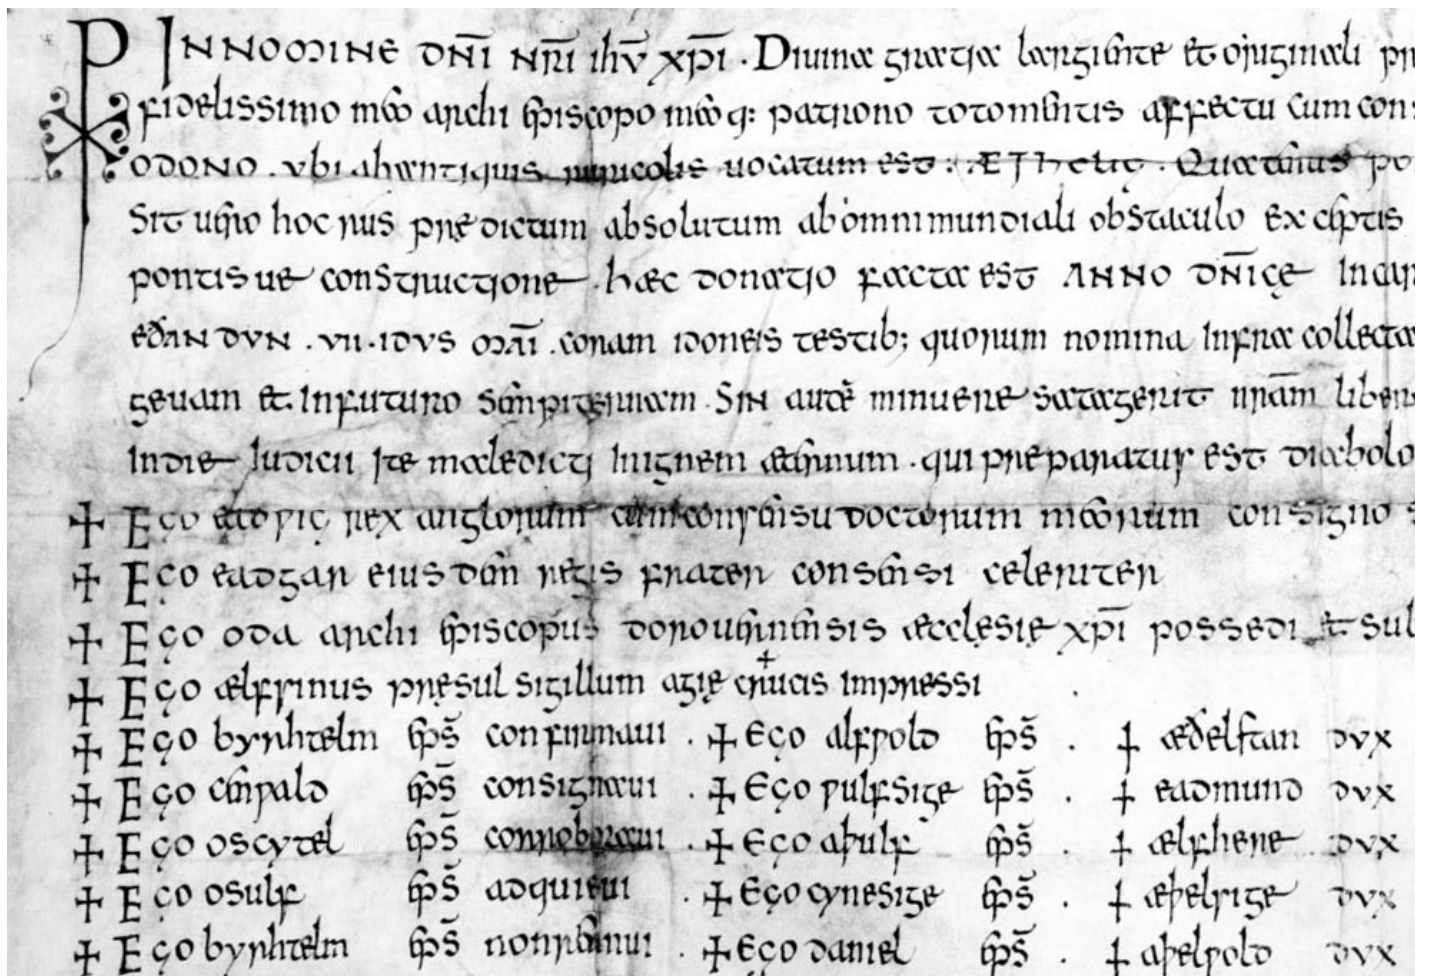 IN NOMINE DNĪ NRĪ ihū xp̄i . Diuina gratia largiente et originali
fidelissimo meo archi episcopo meo q: patrono toto mentis affectu cum
odono . ubi ab antiquis ruricolis uocatum est : ÆThelig . Quatenus
Sit uero hoc rus prędictum absolutum ab omni mundiali obstaculo exceptis
pontis ue constructione . hæc donatio facta est ANNO DNĪCĘ
eðANDVN . VII . IDVS MAĪ . coram idoneis testib; quorum nomina infra collecta
geuam et in futuro sempiternam . SIN aute minuere satagerit nram
In die Iudicii Ite maledicti In ignem æternum . qui preparatus est diabolo
+ Ego eadƿig rex anglorum cum consensu doctorum meorum consigno
+ Ego eadgar eiusdem regis frater consensi celeriter
+ Ego oda archi episcopus dorouernensis æcclęsię xp̄i possedi et
+ Ego ælfsinus pręsul sigillum agię crucis impressi +
+ Ego byrhtelm eps̄ confirmaui . + Ego alfƿold eps̄ . + æðelstan dux
+ Ego cenƿald eps̄ consignaui . + Ego ƿulfsige eps̄ . + eadmund dux
+ Ego oscytel eps̄ corroboraui . + Ego aþulf eps̄ . + ælfhere dux
+ Ego osulf eps̄ adquieui . + Ego cynesige eps̄ . + æþelsige dux
+ Ego byrhtelm eps̄ non renui . + Ego daniel eps̄ . + aþelƿold dux